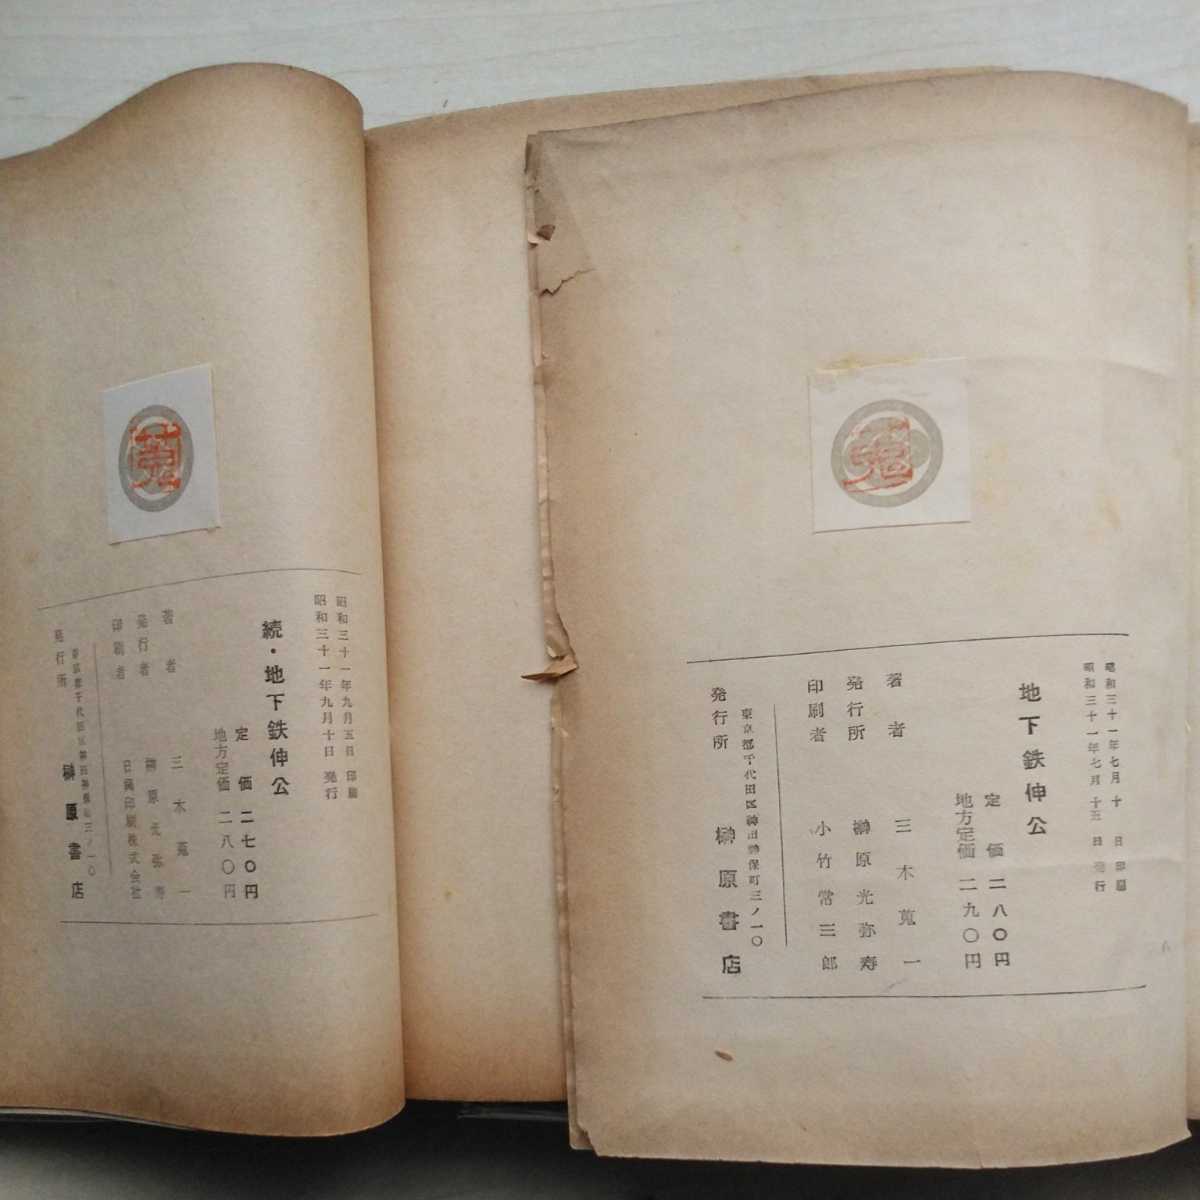 蒐
昭和三十一年七月十日印刷
昭和三十一年七月十五日発行
地下鉄伸公
定価二八〇円
地方定価二九〇円
著者 三木蒐一
発行所 榊原光弥寿
印刷者 小竹常三郎
東京都千代田区神田神保町三ノ一〇
発行所 榊原書店
蒐
昭和三十一年九月五日印刷
昭和三十一年九月十日発行
続・地下鉄伸公
定価二七〇円
地方定価二八〇円
著者 三木蒐一
発行者 榊原光弥寿
印刷者 日興印刷株式会社
東京都千代田区神田神保町三ノ一〇
発行所 榊原書店